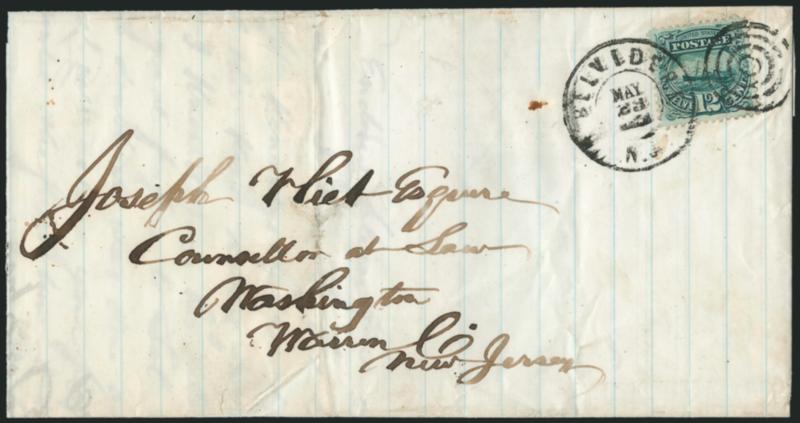 UNITED STATES
POSTAGE
12
BELVIDERE
MAY
23
N.J.
Joseph Vliet Esquire
Counsellor at Law
Washington
Warren Co.
New Jersey